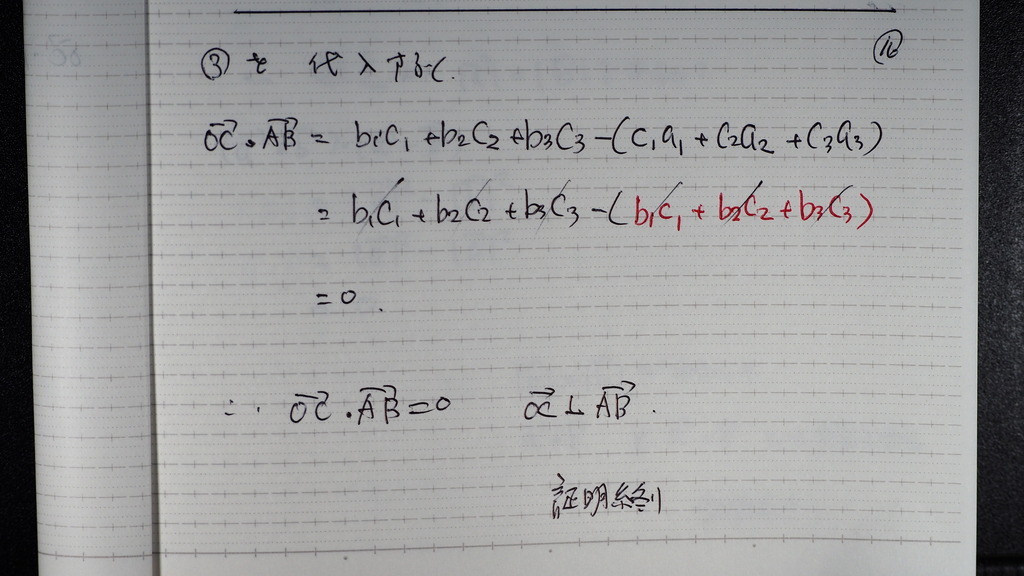 ③を 代入すれば.
⑫
OC→・AB→ = b₁c₁ + b₂c₂ + b₃c₃ - (c₁a₁ + c₂a₂ + c₃a₃)
= b₁c₁ + b₂c₂ + b₃c₃ - (b₁c₁ + b₂c₂ + b₃c₃)
= 0.
∴ OC→・AB→ = 0 OC→ ⊥ AB→.
証明終り